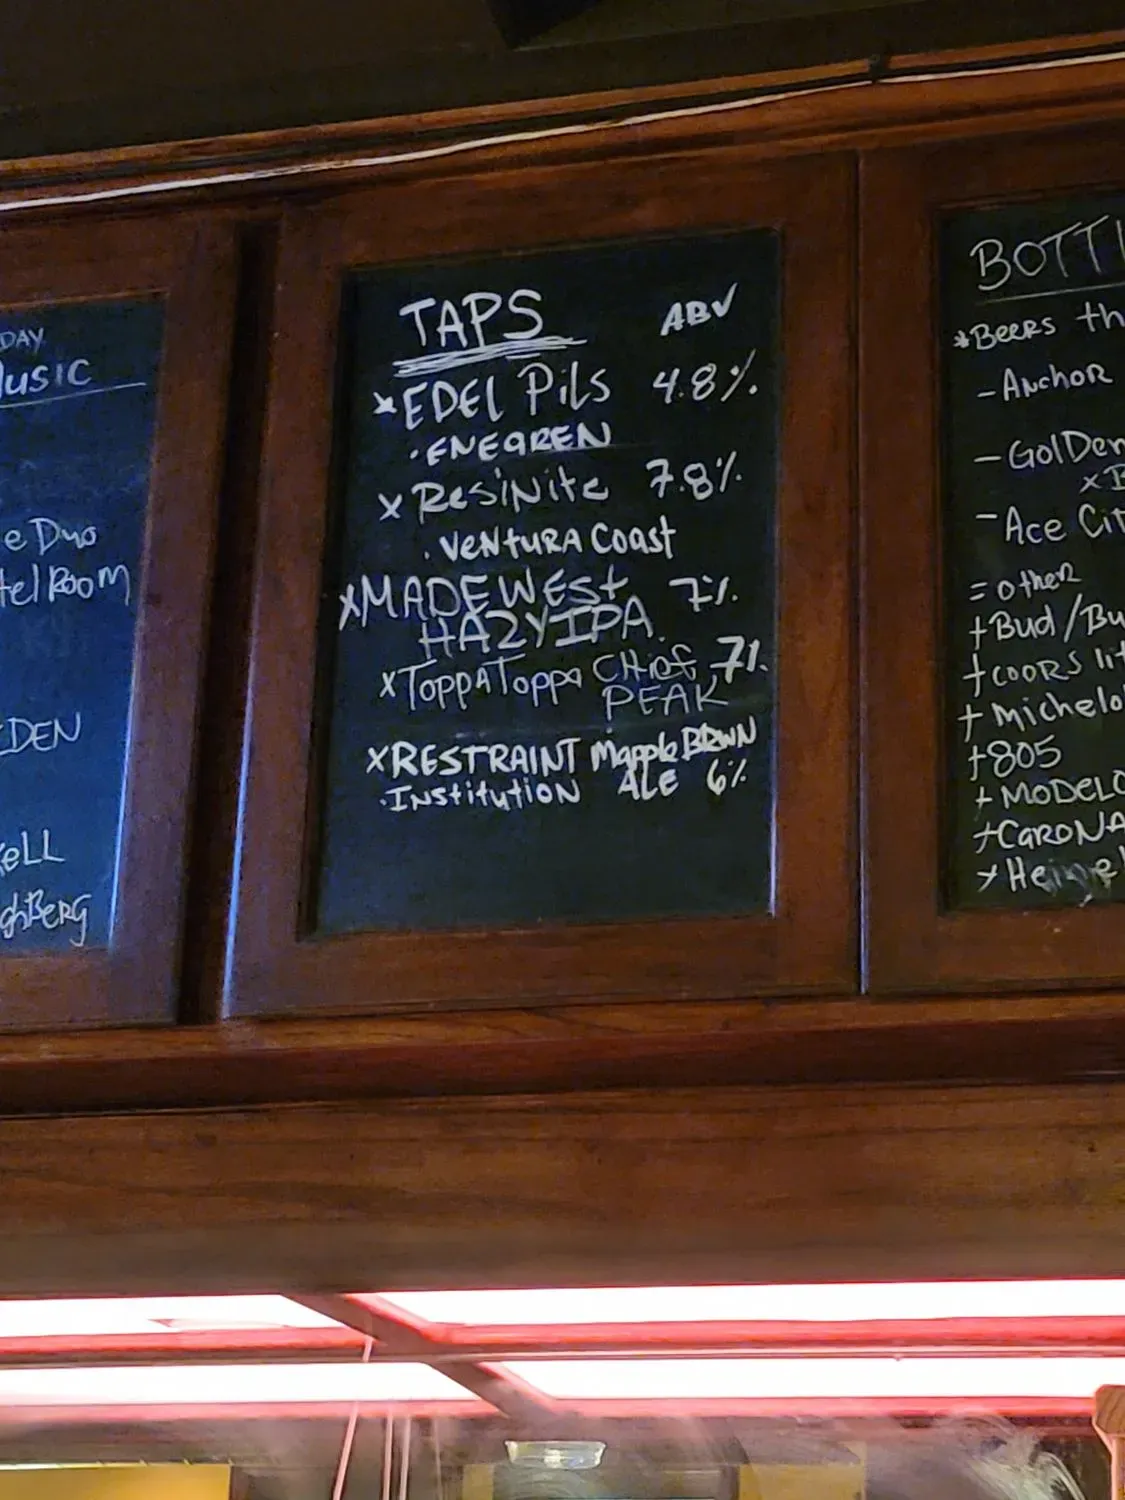 DAY
MUSIC
e Duo
tel ROOM
EDEN
KELL
ghBERG
TAPS ABV
*EDEL PilS 4.8%
·ENEGREN
x RESiNite 7.8%
·VENtURA COast
xMADEWESt 7%
HAZY IPA
xTOPPATOPPA CHiEf 7%
PEAK
xRESTRAINT Mapple BRWN
·INStitutION ALE 6%
BOTTL
*BEERS th
-ANCHOR
-GOlDEN
xB
-ACE Cit
=otheR
+Bud/Bu
+COORS lit
+Michelo
+805
+MODELO
+CaRONA